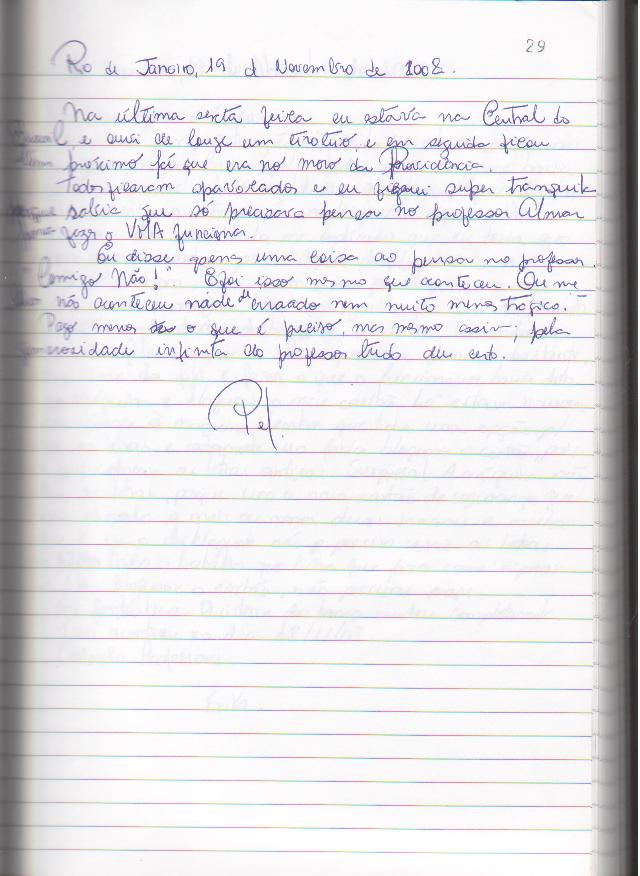 29
Rio de Janeiro, 19 d Novembro de 2008.
Na última sexta feira eu estava na Central do
e ouvi de longe um tiroteio, e em seguida ficou
próximo já que era no morro da Providência.
Todos ficaram apavorados e eu fiquei super tranquila
sabia que só precisava pensar no professor Almar
fazer o VMA funcionar.
Eu disse apenas uma coisa ao pensar no professor
"Comigo Não!". E foi isso mesmo que aconteceu. Ou me
não aconteceu nada de errado nem muito menos trágico.
Pago menos do o que é preciso, mas mesmo assim, pela
generosidade infinita do professor tudo deu certo.